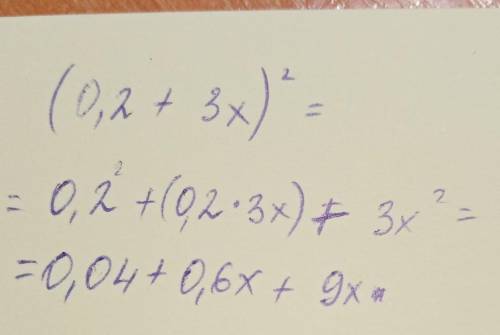 (0,2 + 3x)² =
= 0,2² + (0,2 · 3x) + 3x² =
= 0,04 + 0,6x + 9x.